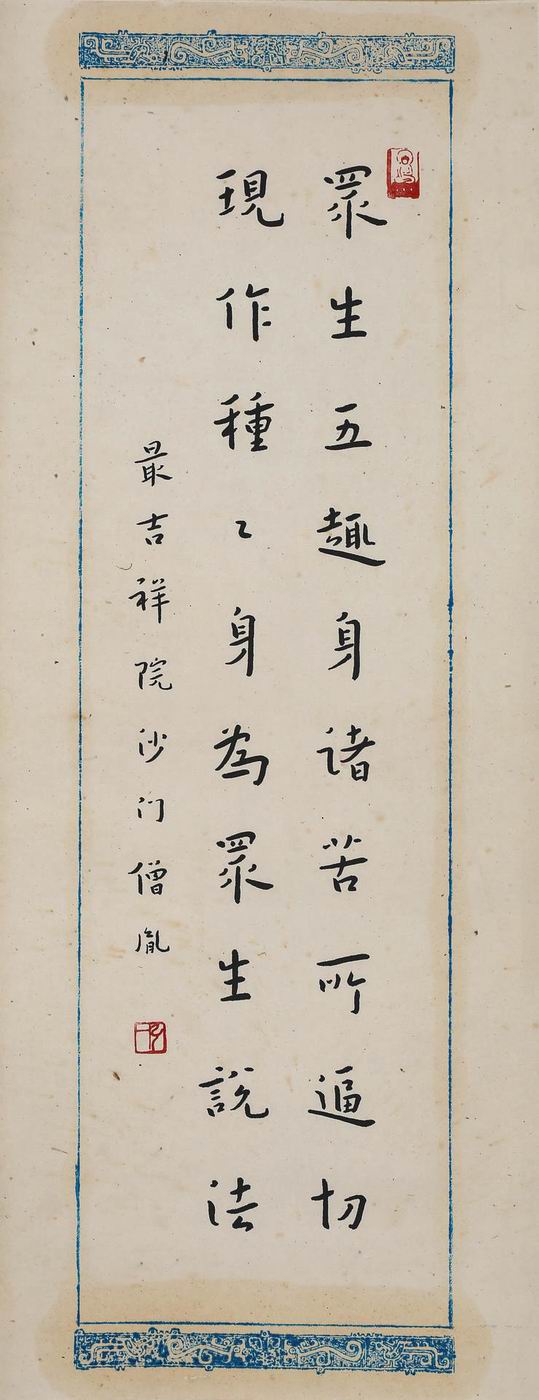 眾生五趣身诸苦所逼切
現作種々身為眾生說法
最吉祥院沙门僧胤